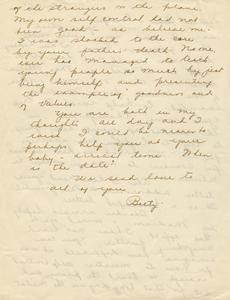 of the strangers in the plane.
My own self control had not
been good - so believe me.
I was shocked to the core
by your father's death. No one
ever has managed to teach
young people so much by just
being himself and presenting
the example of goodness and
of values.
You are both in my
thoughts all day and I
wish I could be nearer to
perhaps help you at your
baby - arrival time. When
is the date?
We send love to
all of you
Betty